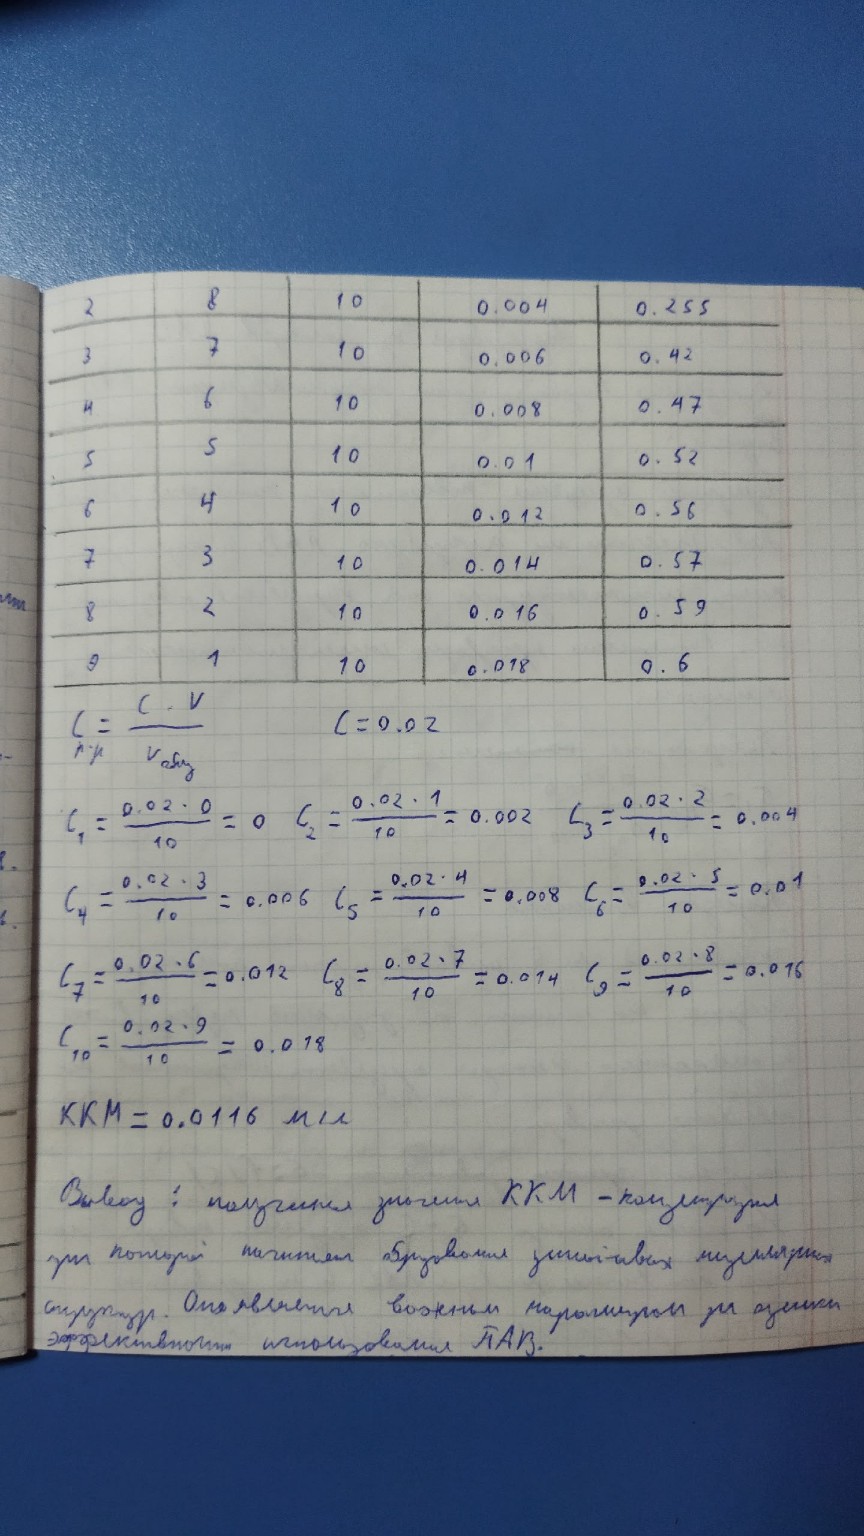 2 8 10 0.004 0.255
3 7 10 0.006 0.42
4 6 10 0.008 0.47
5 5 10 0.01 0.52
6 4 10 0.012 0.56
7 3 10 0.014 0.57
8 2 10 0.016 0.59
9 1 10 0.018 0.6
C р-р = C · V / Vобщ C = 0.02
C1 = 0.02 · 0 / 10 = 0 C2 = 0.02 · 1 / 10 = 0.002 C3 = 0.02 · 2 / 10 = 0.004
C4 = 0.02 · 3 / 10 = 0.006 C5 = 0.02 · 4 / 10 = 0.008 C6 = 0.02 · 5 / 10 = 0.01
C7 = 0.02 · 6 / 10 = 0.012 C8 = 0.02 · 7 / 10 = 0.014 C9 = 0.02 · 8 / 10 = 0.016
C10 = 0.02 · 9 / 10 = 0.018
ККМ = 0.0116 м/л
Вывод : значения ККМ - концентрация
при которой образования мицеллярных
структур. Она является важным параметром эффективности использования ПАВ.